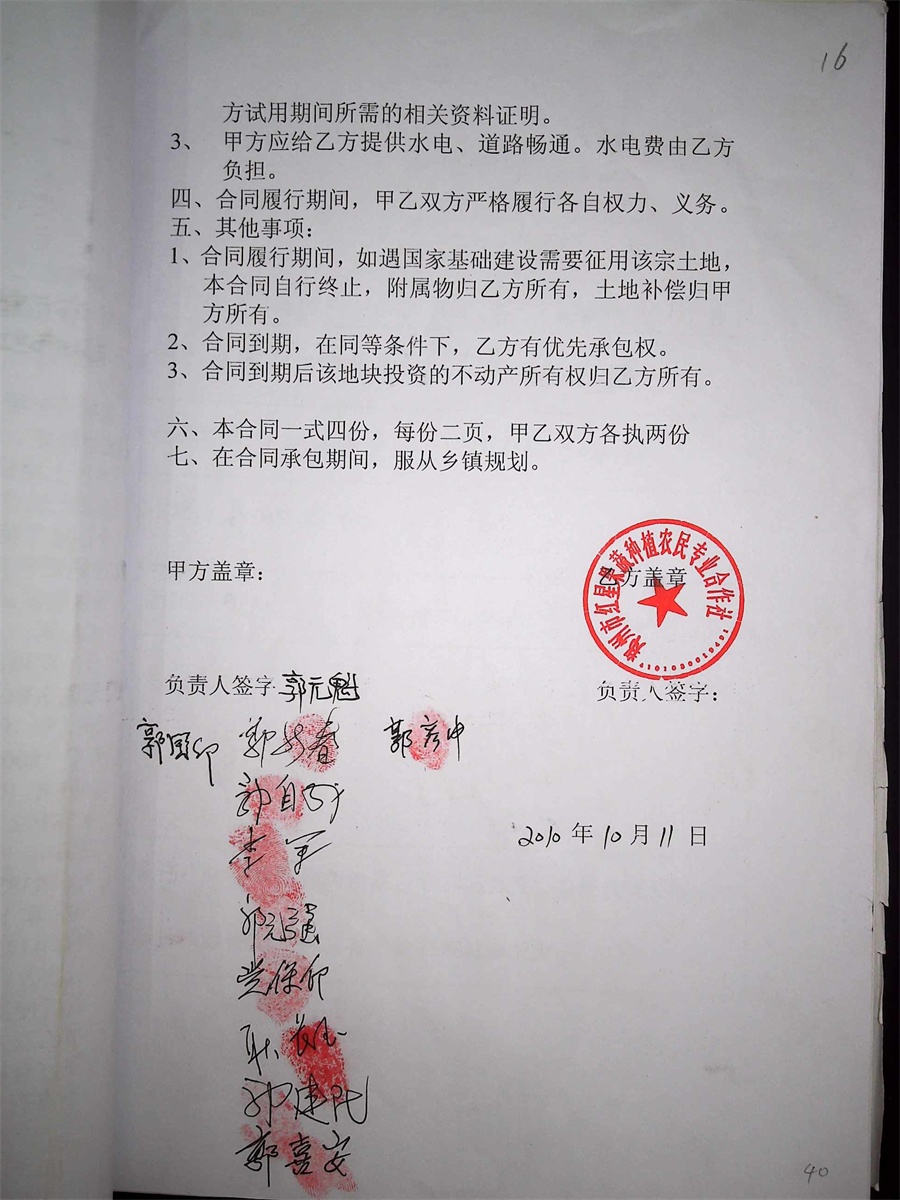 16
方试用期间所需的相关资料证明。
3、 甲方应给乙方提供水电、道路畅通。水电费由乙方
负担。
四、合同履行期间，甲乙双方严格履行各自权力、义务。
五、其他事项：
1、合同履行期间，如遇国家基础建设需要征用该宗土地，
本合同自行终止，附属物归乙方所有，土地补偿归甲
方所有。
2、合同到期，在同等条件下，乙方有优先承包权。
3、合同到期后该地块投资的不动产所有权归乙方所有。
六、本合同一式四份，每份二页，甲乙双方各执两份
七、在合同承包期间，服从乡镇规划。
甲方盖章： 乙方盖章
郑州市红星果蔬种植农民专业合作社
负责人签字 郭元魁 负责人签字：
郭国卯 郭彦中
2010年10月11日
李军
郭元强
党保卯
郭建民
郭喜安
40